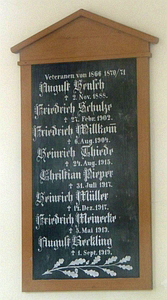 Veteranen von 1866 1870/71
August Hensch
† 2. Nov. 1888.
Friedrich Schulze
† 27. Febr. 1902.
Friedrich Willkom
† 6. Aug. 1904.
Heinrich Thiede
† 24. Aug. 1915.
Christian Pieper
† 31. Juli 1917.
Heinrich Müller
† 14. Dez. 1917.
Friedrich Meinecke
† 5. Mai 1913.
August Beckling
† 1. Sept. 1919.